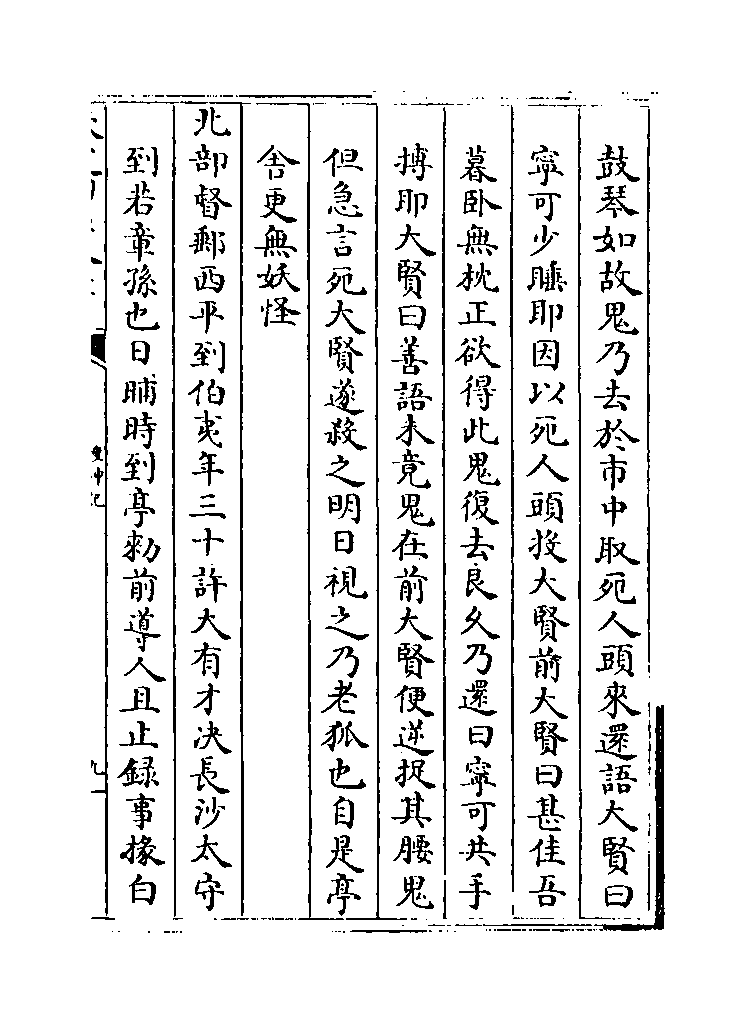 鼓琴如故鬼乃去於市中取死人頭來還語大賢曰
寧可少睡耶因以死人頭投大賢前大賢曰甚佳吾
暮卧無枕正欲得此鬼復去良久乃還曰寧可共手
搏耶大賢曰善語未竟鬼在前大賢便逆捉其腰鬼
但急言死大賢遂殺之明日視之乃老狐也自是亭
舍更無妖怪
北部督郵西平到伯夷年三十許大有才决長沙太守
到若章孫也日晡時到亭勑前導人且止録事掾白
搜神記
九